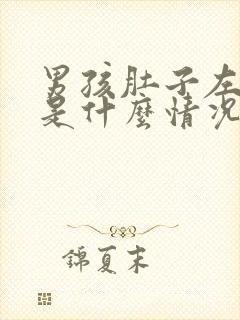 男孩肚子左
是什麼情况
錦夏末